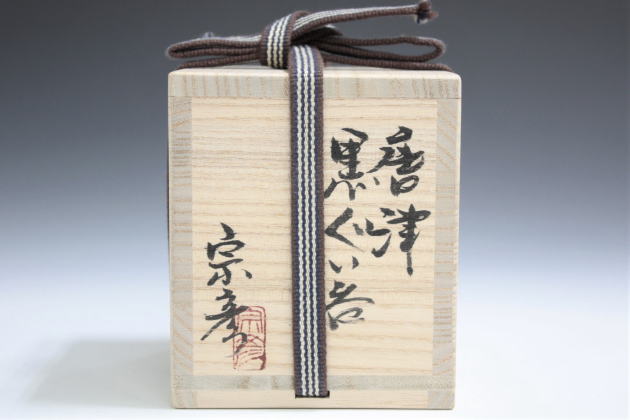 唐津
黒ぐい呑
宗彦